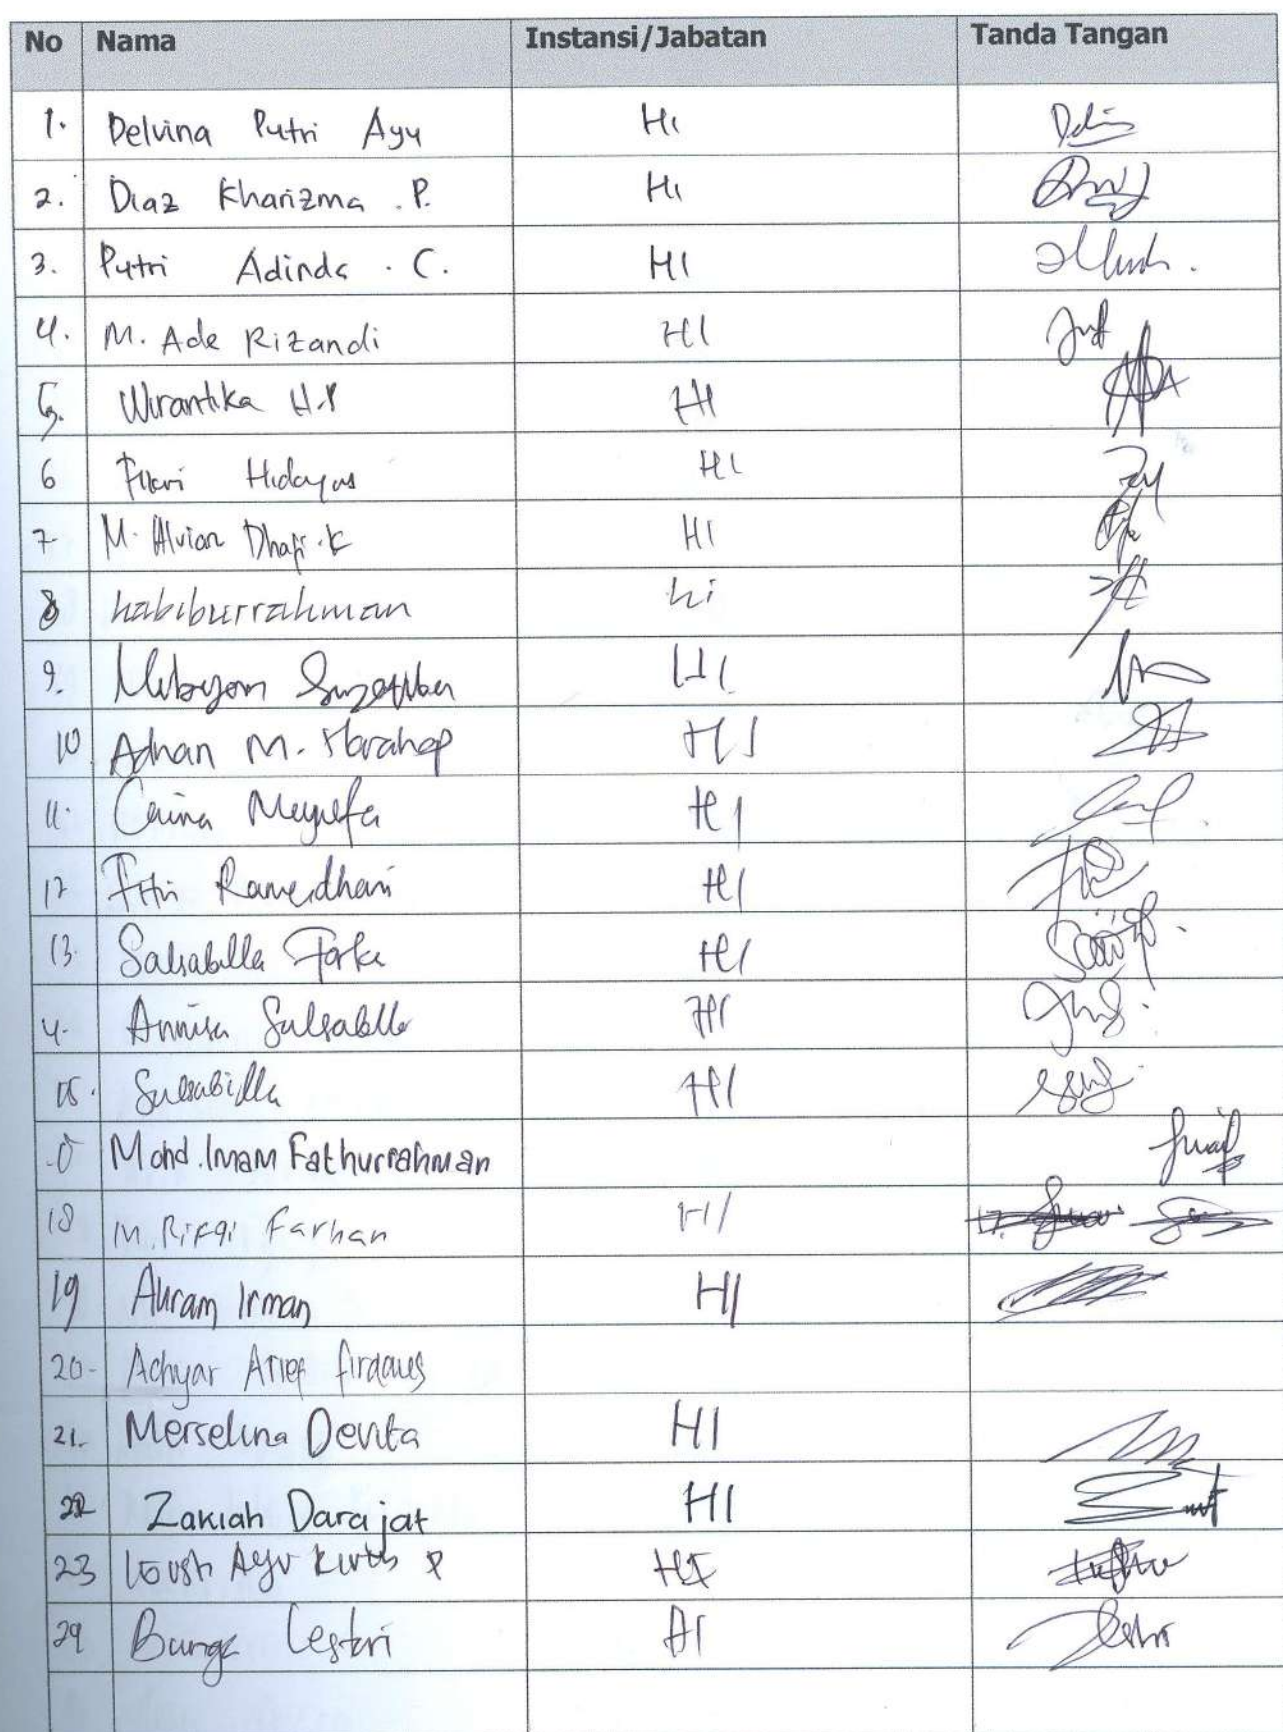 No Nama Instansi/Jabatan Tanda Tangan
1. Delvina Putri Ayu Hi
2. Diaz Kharizma . P. Hi
3. Putri Adinda . C. HI
4. M. Ade Rizandi HI
5. Wirantika H.P HI
6 Fikri Hidayas HI
7. M. Alvian Dhafi.K HI
8 habiburrahman hi
9. HI
10 Adnan M. Harahap HI
11. HI
12 Fitri Ramadhani HI
13. Salsabilla HI
14. Annisa Salsabilla HI
15. Salsabilla HI
Mohd. Imam Fathurrahman
18 M. Rifqi Farhan HI 17.
19 Akram Irman HI
20- Achyar Arief firdaus
21. Merselina Devita HI
22 Zakiah Darajat HI
23 Ayu P HI
24 Bunga Lestari HI